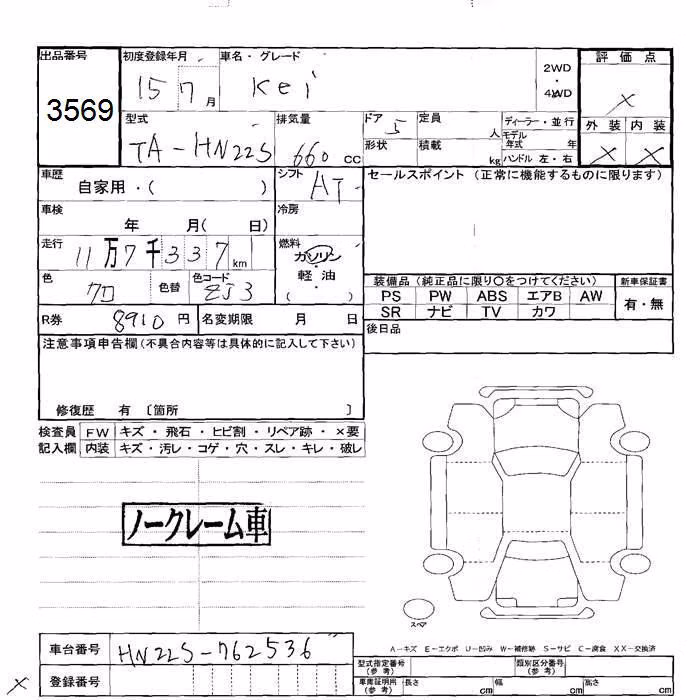 出品番号 初度登録年月 車名・グレード 評価点
3569 15 7月 Kei 2WD・4WD ×
型式 排気量 ドア 定員 ディーラー・並行 外装 内装
TA-HN22S 660 cc 5 人 モデル年式 年 × ×
形状 積載 kg ハンドル 左・右
車歴 シフト セールスポイント (正常に機能するものに限ります)
自家用・( ) AT
車検 冷房
年 月( 日)
走行 燃料
11万7千337km ガソリン・軽油・( )
色 色替 色コード 装備品 (純正品に限り○をつけてください) 新車保証書
クロ ZJ3 PS PW ABS エアB AW 有・無
SR ナビ TV カワ
R券 8910円 名変期限 月 日 後日品
注意事項申告欄(不具合内容等は具体的に記入して下さい)
修復歴 有 〔箇所 〕
検査員 FW キズ・飛石・ヒビ割・リペア跡・×要
記入欄 内装 キズ・汚レ・コゲ・穴・スレ・キレ・破レ
ノークレーム車
スペア
A-キズ E-エクボ U-凹み W-補修跡 S-サビ C-腐食 XX-交換済
車台番号 HN22S-762536
型式指定番号(参考) 類別区分番号(参考)
× 登録番号 車庫証明用(参考) 長さ cm 幅 cm 高さ cm